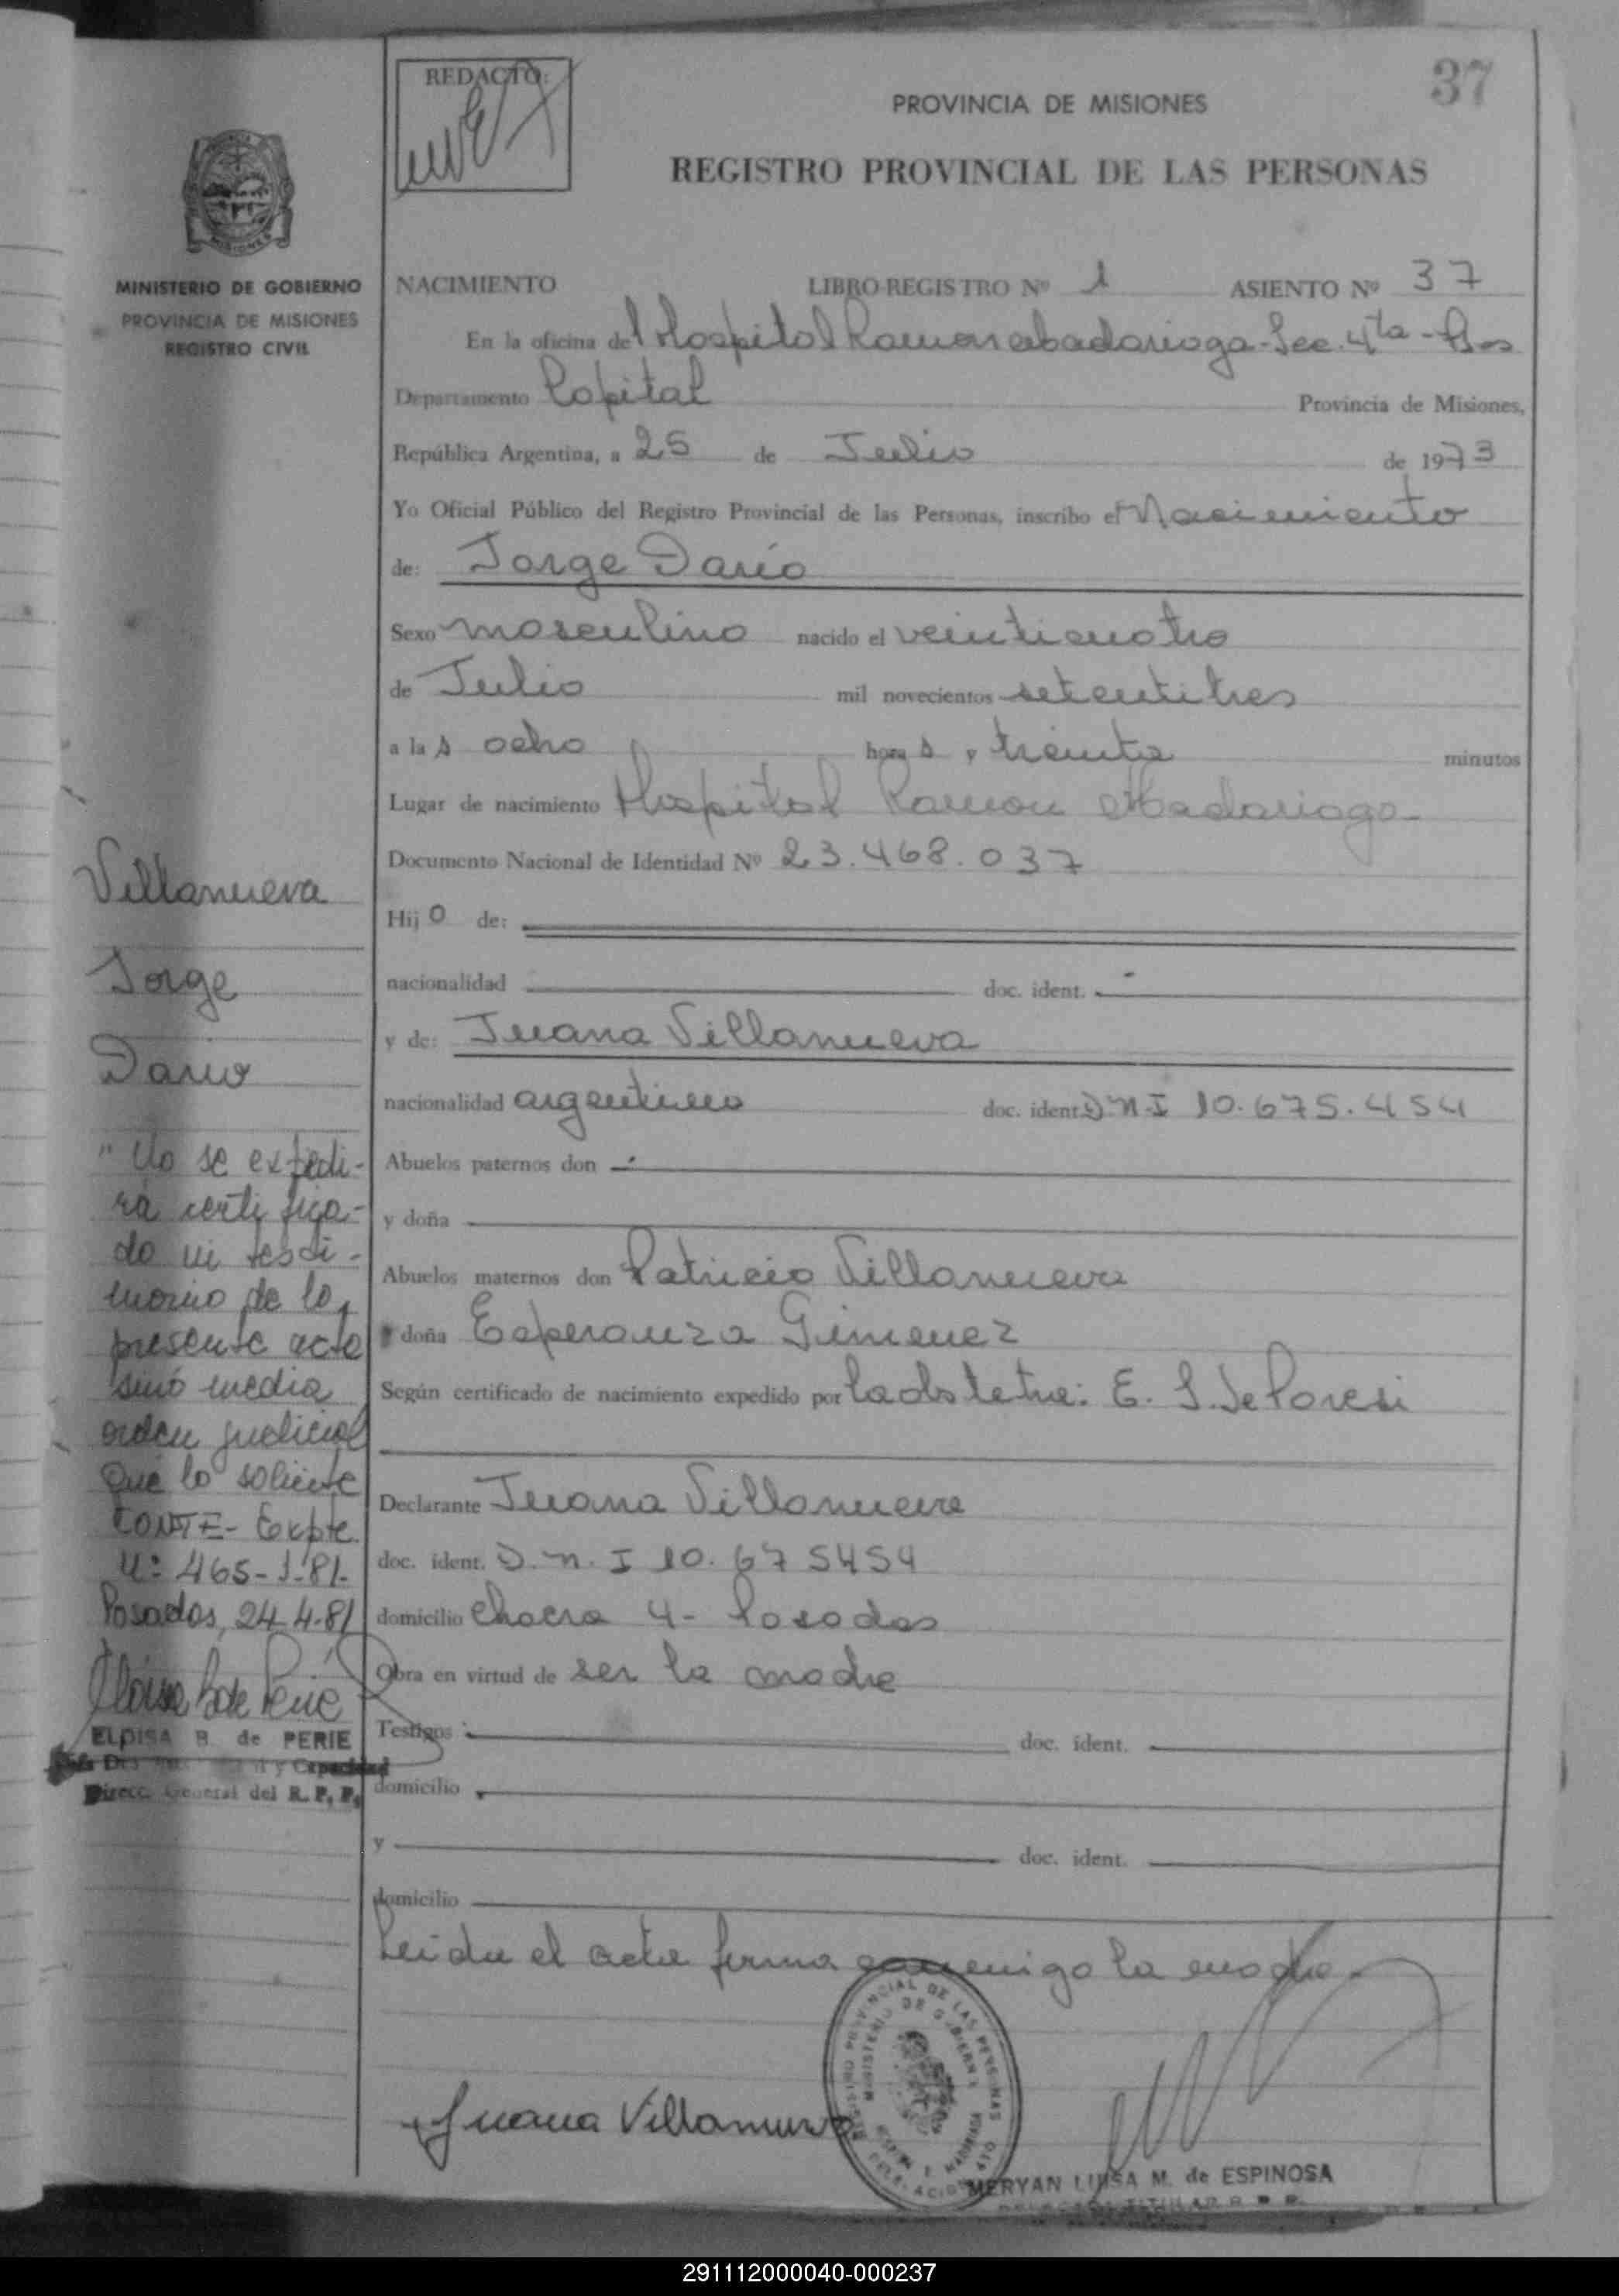 37
REDACTO:
PROVINCIA DE MISIONES
REGISTRO PROVINCIAL DE LAS PERSONAS
MINISTERIO DE GOBIERNO
PROVINCIA DE MISIONES
REGISTRO CIVIL
NACIMIENTO LIBRO-REGISTRO Nº 1 ASIENTO Nº 37
En la oficina del Hospital Ramon Abadariaga-Sec. 4ta - Pdas
Departamento Capital Provincia de Misiones,
República Argentina, a 25 de Julio de 1973
Yo Oficial Público del Registro Provincial de las Personas, inscribo el Nacimiento
de: Jorge Dario
Sexo masculino nacido el veinticuatro
de Julio mil novecientos setentitres
a las ocho horas y treinta minutos
Lugar de nacimiento Hospital Ramon Abadariaga
Documento Nacional de Identidad Nº 23.468.037
Hijo de:
nacionalidad doc. ident.
y de: Juana Villanueva
nacionalidad argentina doc. ident. D.N.I 10.675.454
Abuelos paternos don
y doña
Abuelos maternos don Patricio Villanueva
y doña Esperanza Gimenez
Según certificado de nacimiento expedido por la obstetra: E. S. de
Declarante Juana Villanueva
doc. ident. D.N.I 10.675454
domicilio Chacra 4- Posadas
Obra en virtud de ser la madre
Testigos: doc. ident.
domicilio
y doc. ident.
domicilio
Leida el acta firma conmigo la madre.
Juana Villanueva
MERYAN LUISA M. de ESPINOSA
Villanueva
Jorge
Dario
"No se expedi-
rá certifica-
do ni testi-
monio de la
presente acta
sinó media
orden judicial
que lo solicite
CONTE- Expte.
Nº 465-J-81-
Posadas, 24-4-81
ELOISA B. de PERIE
y Capacidad
Direcc. General del R. P. P.
REGISTRO PROVINCIAL DE LAS PERSONAS
MINISTERIO DE GOBIERNO
291112000040-000237